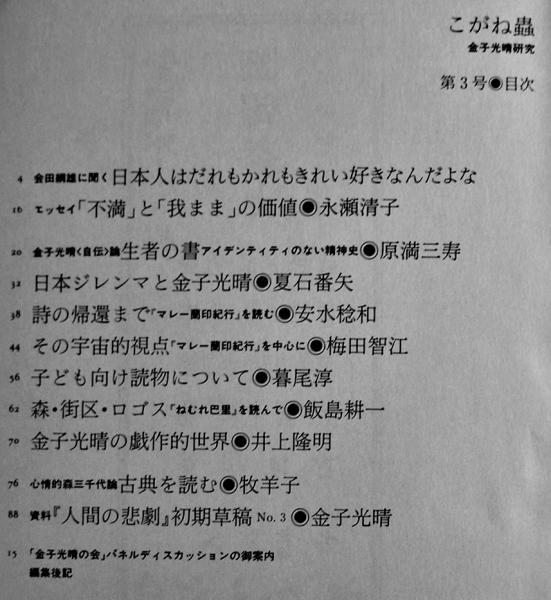 こがね蟲
金子光晴研究
第3号◉目次
4 会田綱雄に聞く 日本人はだれもかれもきれい好きなんだよな
16 エッセイ「不満」と「我まま」の価値◉永瀬清子
20 金子光晴〈自伝〉論 生者の書 アイデンティティのない精神史◉原満三寿
32 日本ジレンマと金子光晴◉夏石番矢
38 詩の帰還まで「マレー蘭印紀行」を読む◉安水稔和
44 その宇宙的視点「マレー蘭印紀行」を中心に◉梅田智江
56 子ども向け読物について◉暮尾淳
62 森・街区・ロゴス「ねむれ巴里」を読んで◉飯島耕一
70 金子光晴の戯作的世界◉井上隆明
76 心情的森三千代論 古典を読む◉牧羊子
88 資料『人間の悲劇』初期草稿 No. 3 ◉金子光晴
15 「金子光晴の会」パネルディスカッションの御案内
編集後記